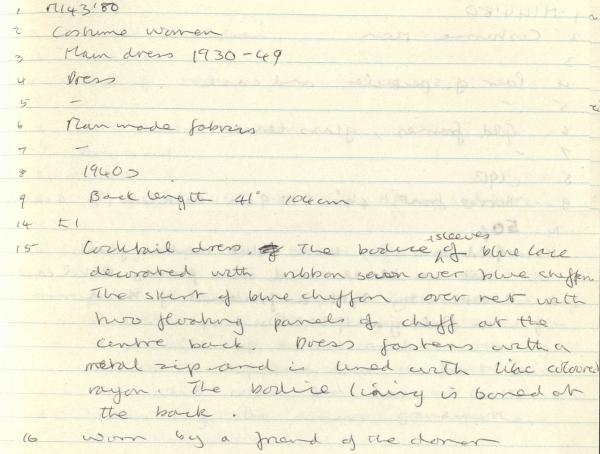 1 M143'80
2 Costume women
3 Main dress 1930-49
4 Dress
5 -
6 Man made fabrics
7 -
8 1940s
9 Back length 41" 104cm
14 £1
15 Cocktail dress. The bodice + sleeves of blue lace
decorated with ribbon sewn over blue chiffon.
The skirt of blue chiffon over net with
two floating panels of chiff at the
centre back. Dress fastens with a
metal zip and is lined with lilac coloured
rayon. The bodice lining is boned at
the back.
16 Worn by a friend of the donor